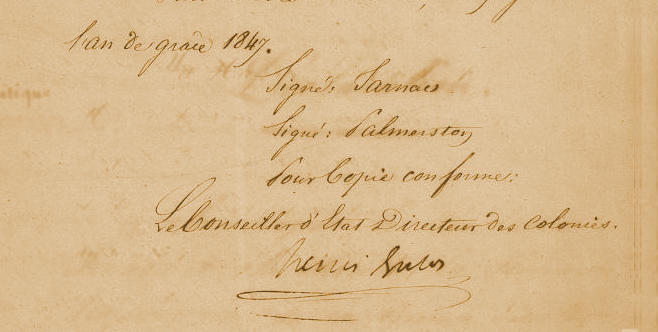 l'an de grâce 1847.
Signé: Jarnac
Signé: Palmerston
Pour Copie conforme:
Le Conseiller d'Etat Directeur des Colonies.